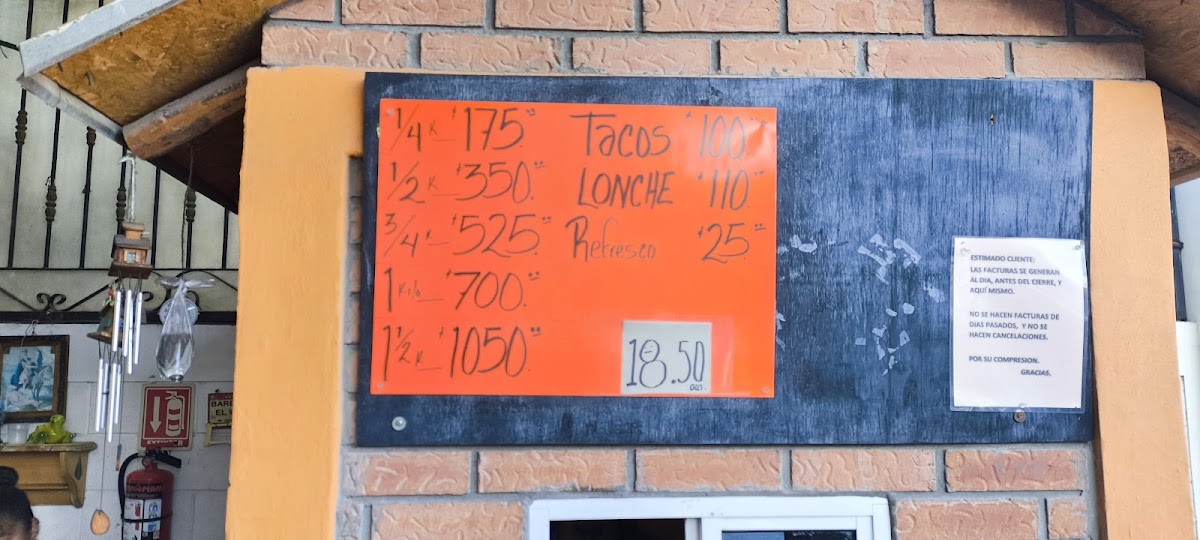 1/4 K $175.00
1/2 K $350.00
3/4 K $525.00
1 Kilo $700.00
1 1/2 K $1050.00
Tacos $100.00
LONCHE $110.00
Refresco $25.00
18.50
DLLS.
ESTIMADO CLIENTE:
LAS FACTURAS SE GENERAN
AL DIA, ANTES DEL CIERRE, Y
AQUÍ MISMO.
NO SE HACEN FACTURAS DE
DIAS PASADOS, Y NO SE
HACEN CANCELACIONES.
POR SU COMPRESION.
GRACIAS.
EXTINTOR
EL